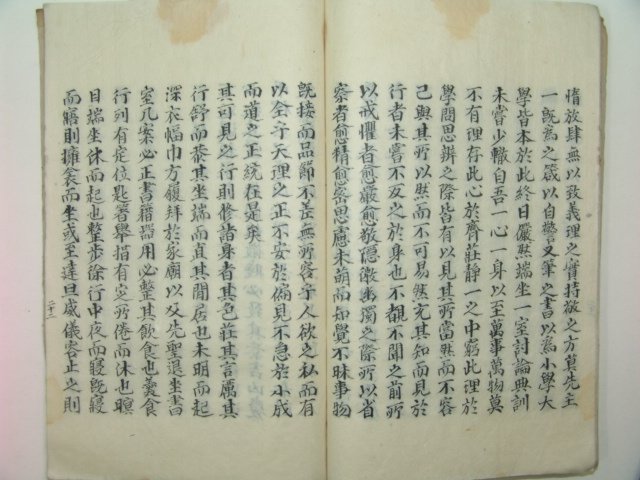 惰放肆無以致義理之實持敬之方莫先主
一旣爲之箴以自警又筆之書以爲小學大
學皆本於此終日儼然端坐一室討論典訓
未嘗少輟自吾一心一身以至萬事萬物莫
不有理存此心於齊莊靜一之中窮此理於
學問思辨之際皆有以見其所當然而不容
已與其所以然而不可易然充其知而見於
行者未嘗不反之於身也不覩不聞之前所
以戒懼者愈嚴愈敬隱微幽獨之際所以省
察者愈精愈密思慮未萌而知覺不昧事物
旣接而品節不差無所容乎人欲之私而有
以全乎天理之正不安於偏見不急於小成
而道之正統在是矣
其可見之行則修諸身者其色莊其言厲其
行舒而恭其坐端而直其閒居也未明而起
深衣幅巾方履拜於家廟以及先聖退坐書
室几案必正書籍器用必整其飲食也羹食
行列有定位匙箸舉措有定所倦而休也瞑
目端坐休而起也整步徐行中夜而寢旣寢
而寤則擁衾而坐或至達旦威儀容止之則
二十三